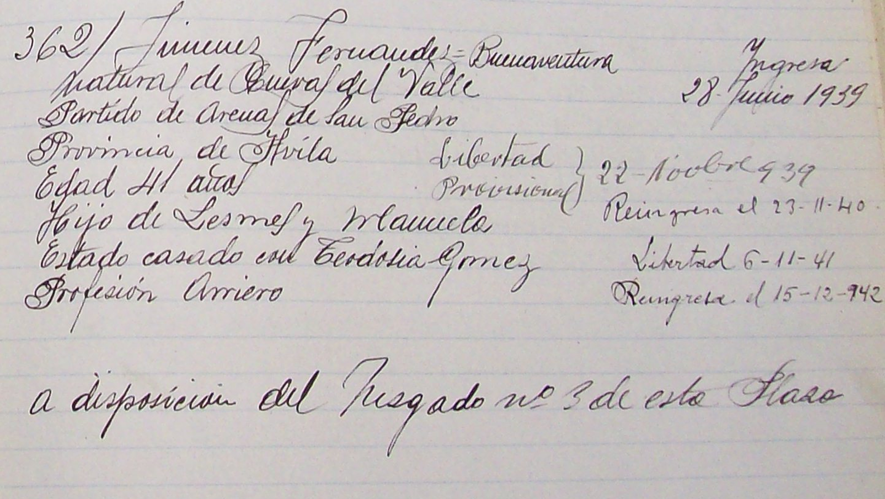 362/ Jimenez Fernandez = Buenaventura
natural de Cuevas del Valle
Partido de Arenas de San Pedro
Provincia de Avila
Edad 41 años
Hijo de Lesmes y Manuela
Estado casado con Teodosia Gomez
Profesión Arriero
Ingresa
28 Junio 1939
Libertad
Provisional } 22 - Novbre 939
Reingresa el 23-11-40.
Libertad 6-11-41
Reingresa el 15-12-942
a disposicion del Jusgado nº 3 de esta Plaza